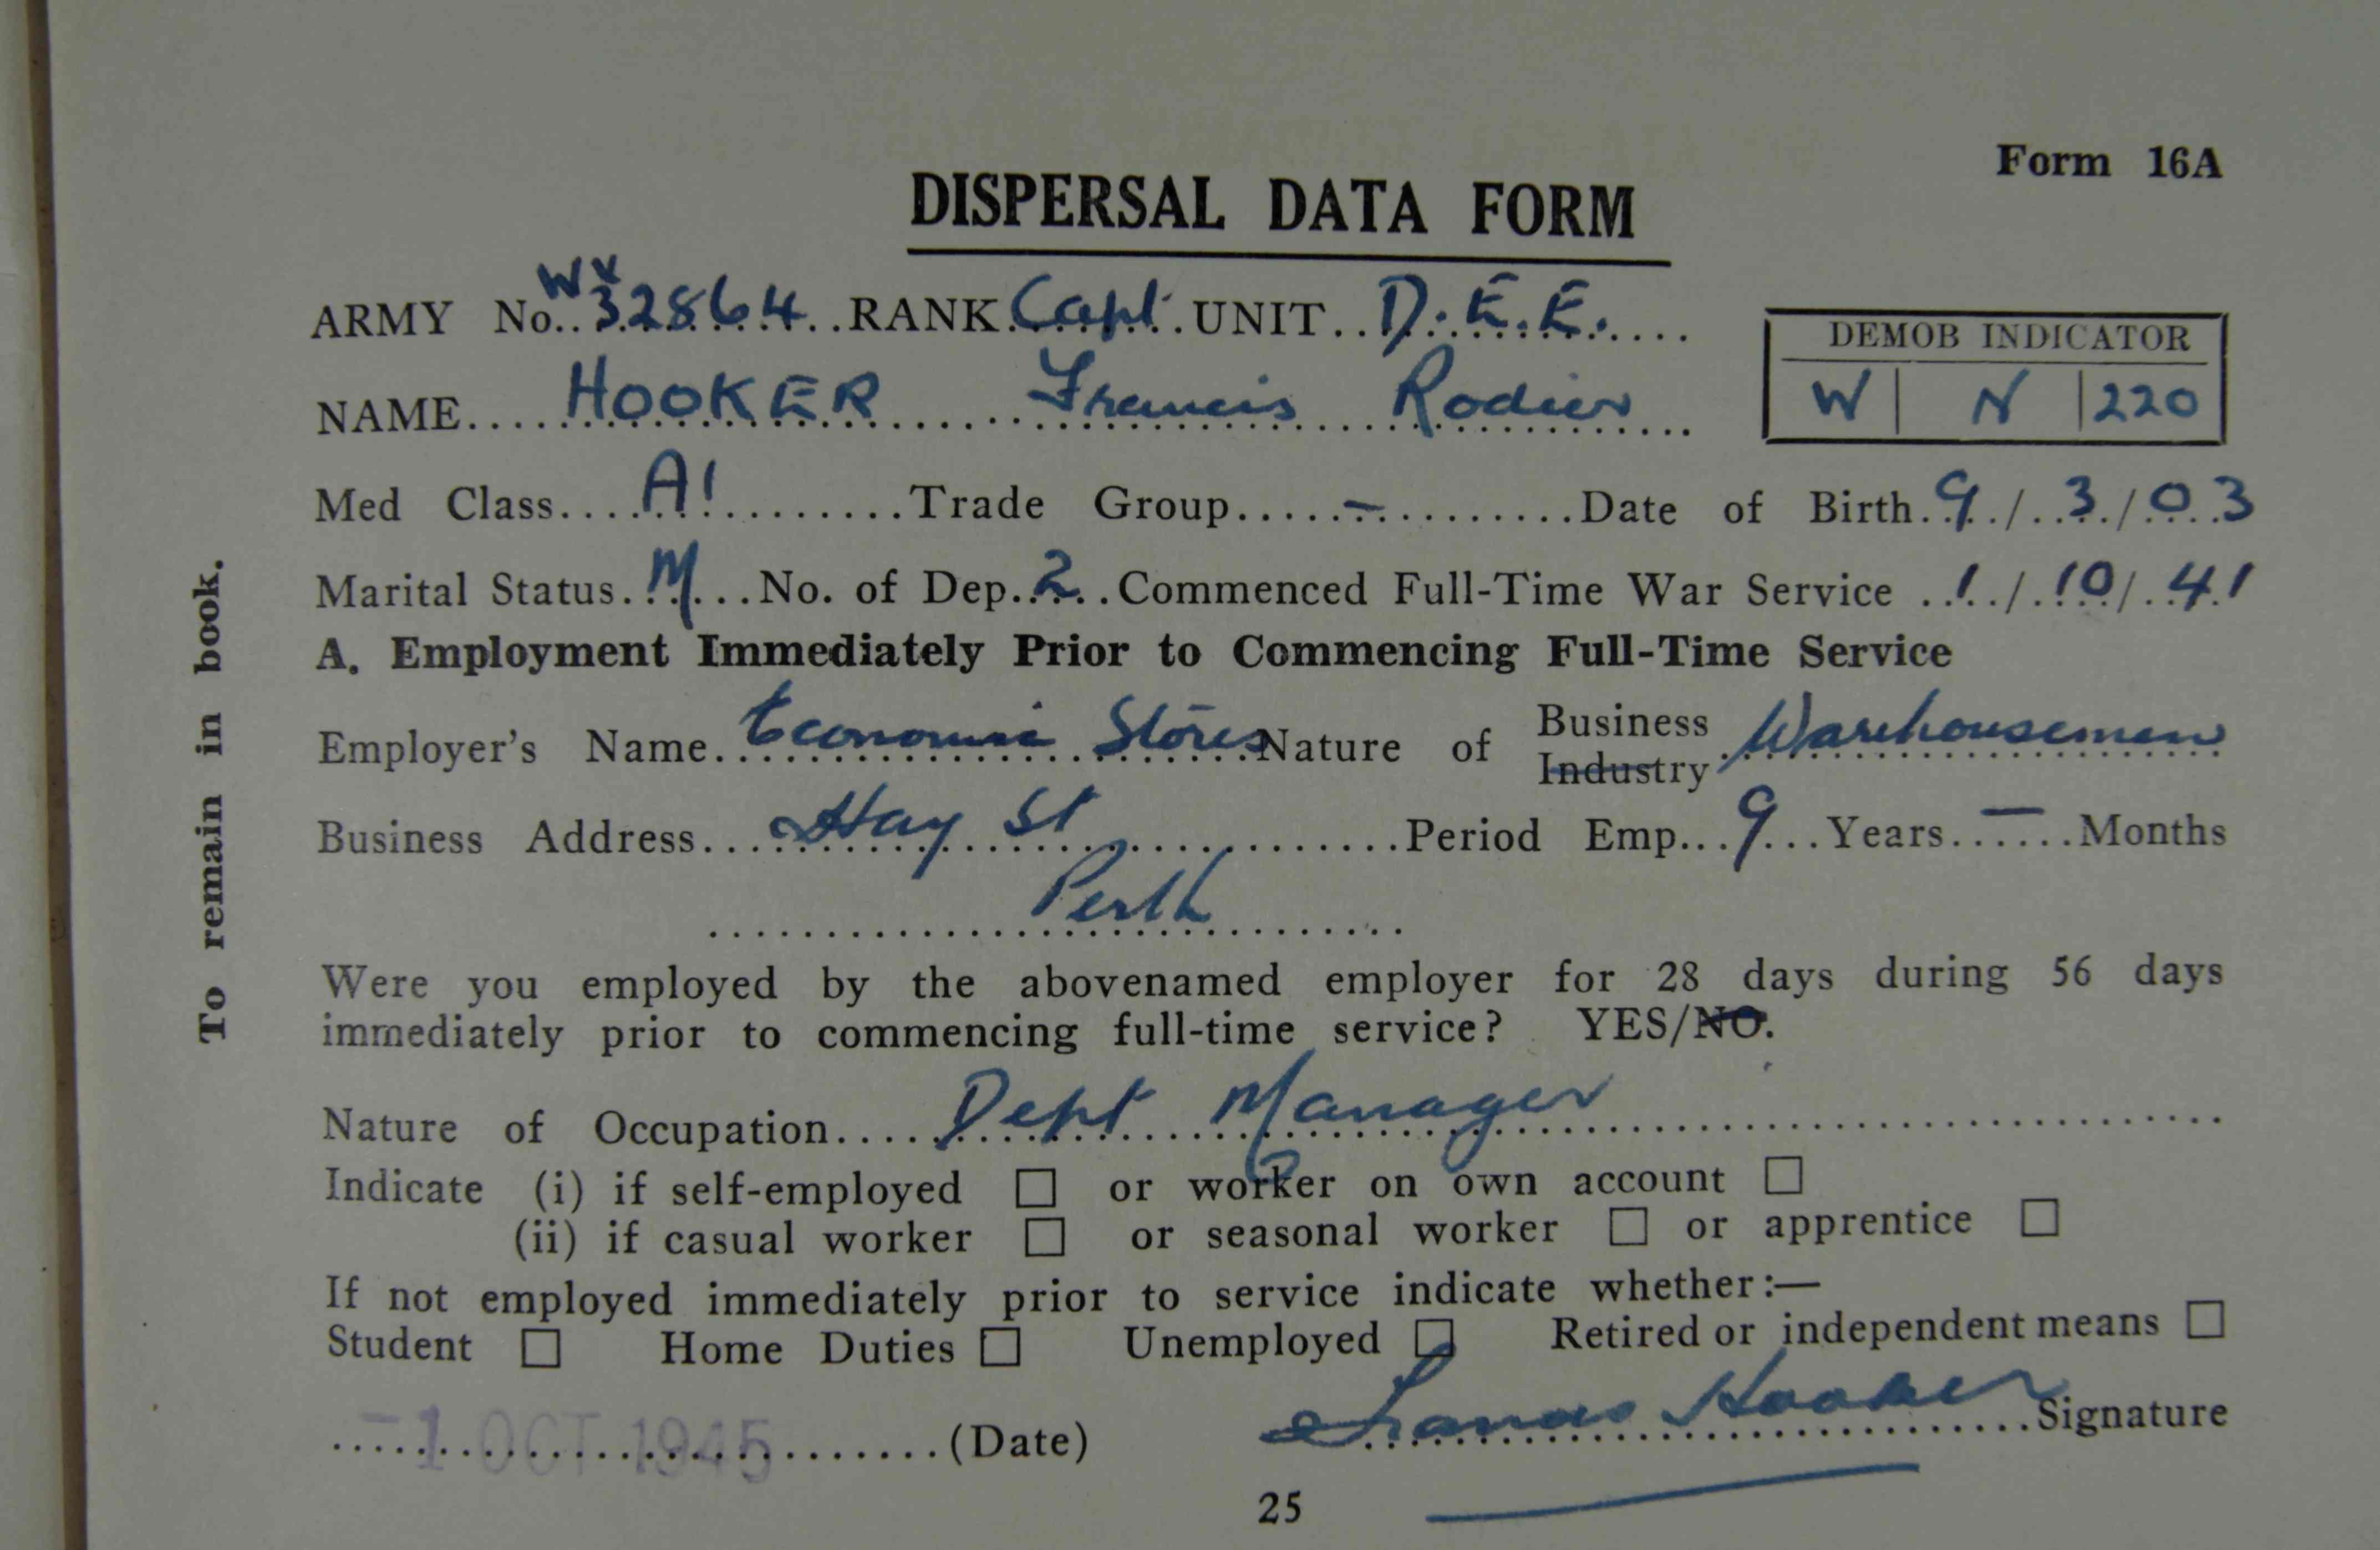 Form 16A
DISPERSAL DATA FORM
ARMY No. WX32864 RANK Capt. UNIT D.E.E.
DEMOB INDICATOR
W | N | 220
NAME HOOKER Francis Rodier
Med Class A1 Trade Group - Date of Birth 9/3/03
Marital Status M No. of Dep. 2 Commenced Full-Time War Service 1/10/41
A. Employment Immediately Prior to Commencing Full-Time Service
Employer's Name Economic Stores Nature of Business Industry Warehousemen
Business Address Hay St Period Emp. 9 Years — Months
Perth
Were you employed by the abovenamed employer for 28 days during 56 days
immediately prior to commencing full-time service? YES/NO.
Nature of Occupation Dept Manager
Indicate (i) if self-employed □ or worker on own account □
(ii) if casual worker □ or seasonal worker □ or apprentice □
If not employed immediately prior to service indicate whether:—
Student □ Home Duties □ Unemployed □ Retired or independent means □
-1 OCT 1945 (Date) Francis Hooker Signature
25
To remain in book.